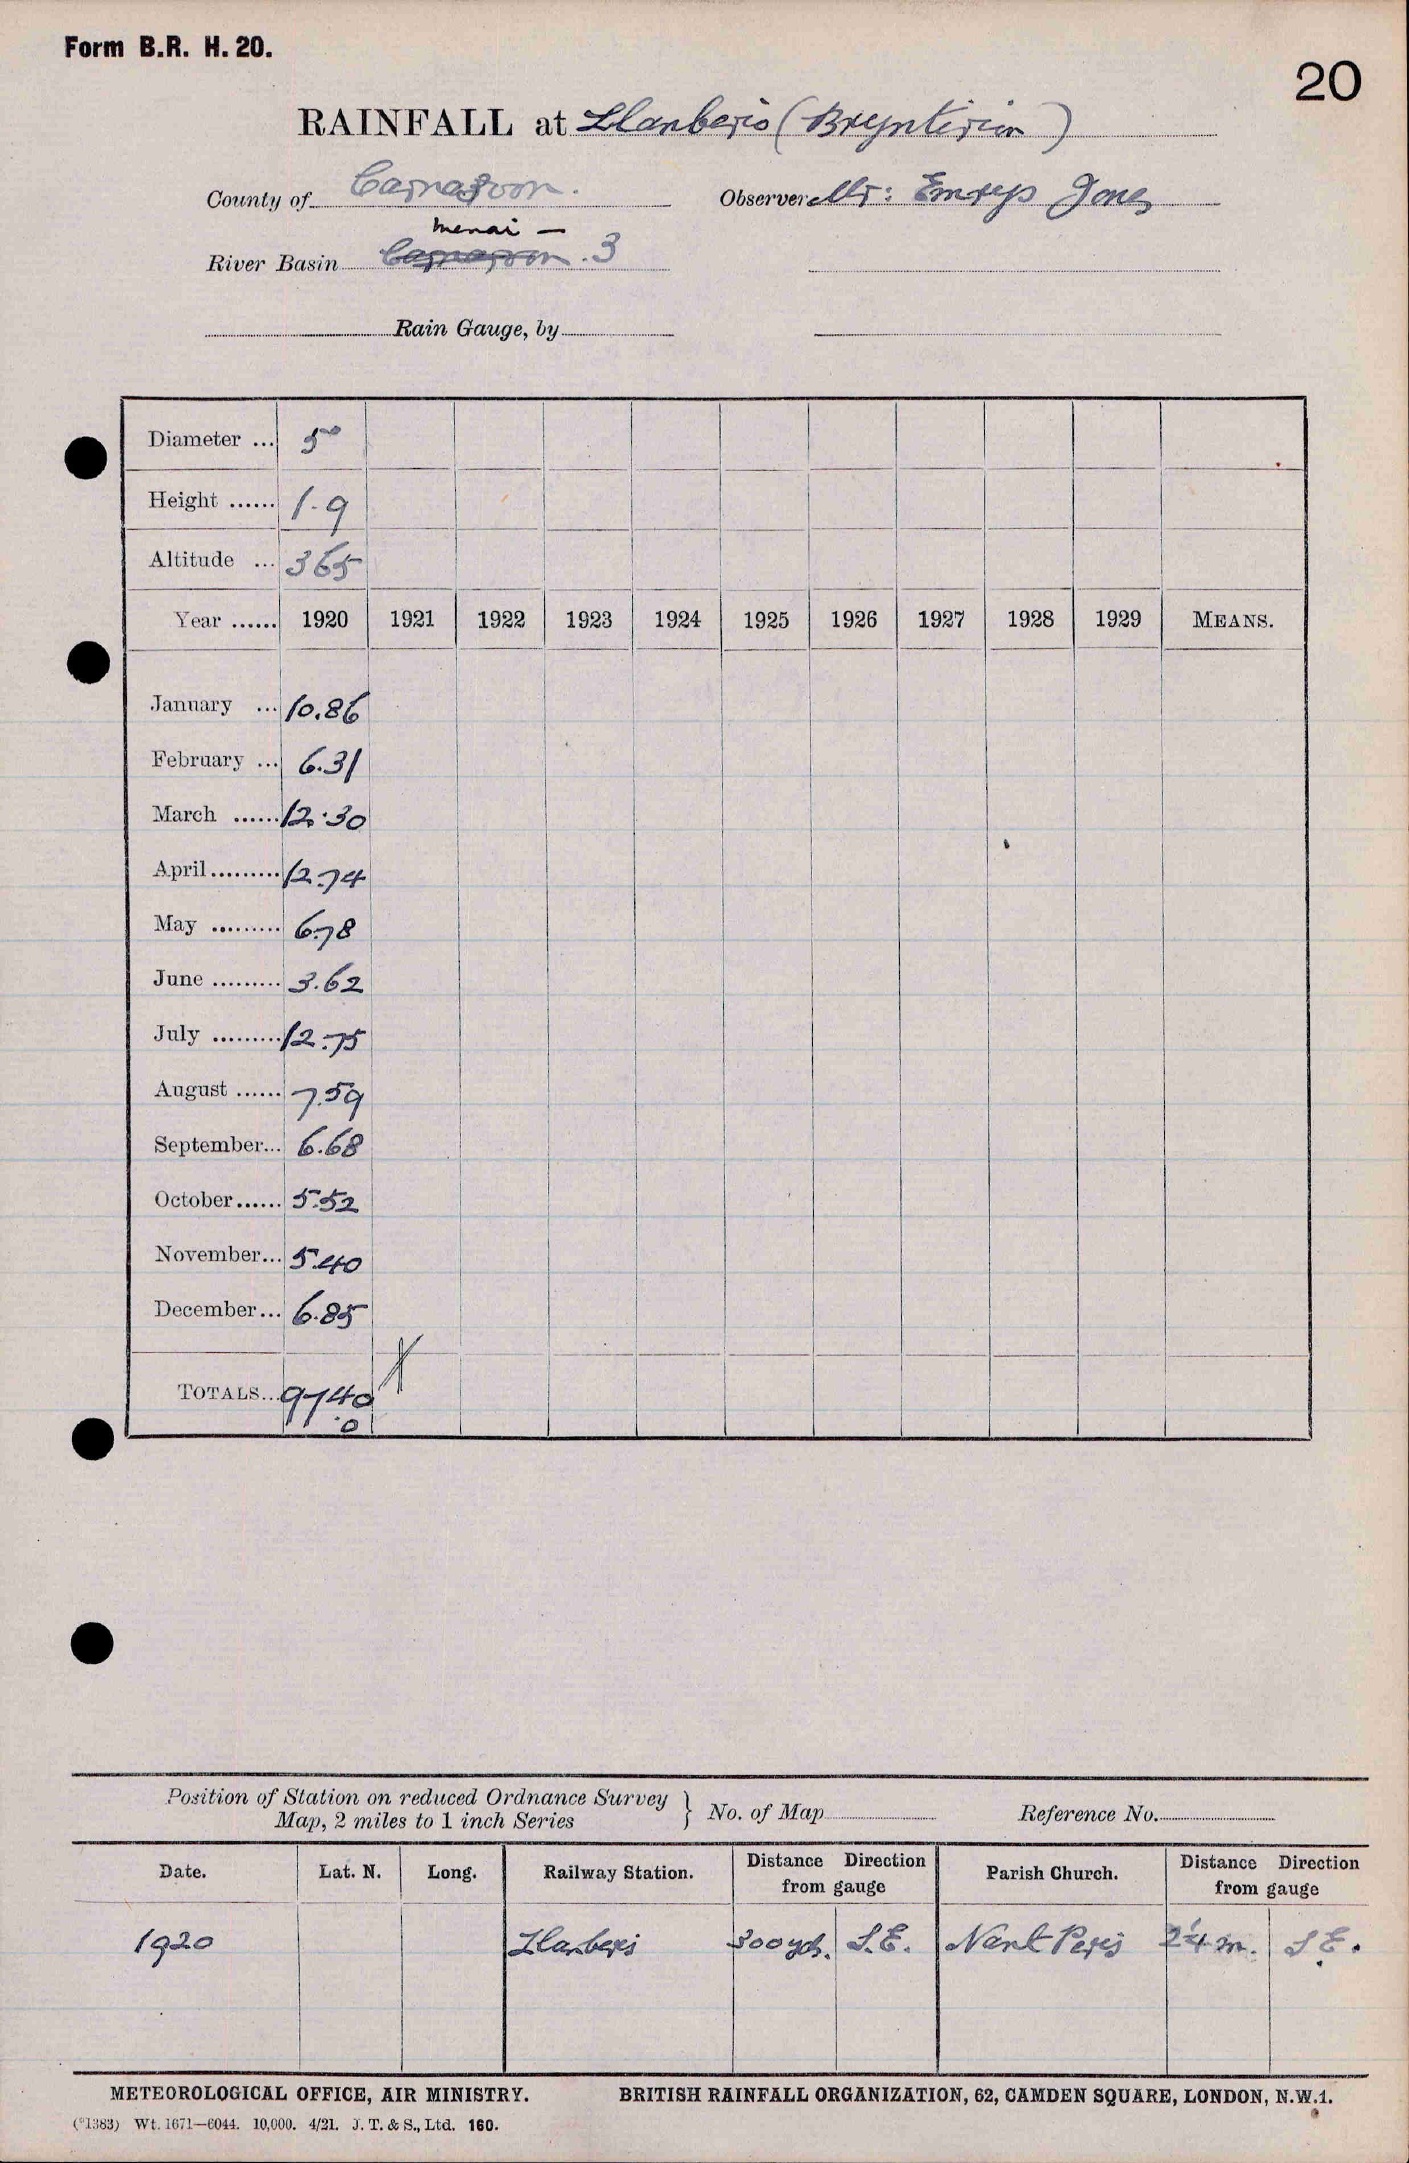 Form B.R. H. 20.
20
RAINFALL at Llanberis (Bryntirion)
County of Carnarvon.
Observer Mr: Emrys Jones
Menai —
River Basin Carnarvon. 3
Rain Gauge, by
Diameter ... 5"
Height ...... 1-9
Altitude ... 365
Year ...... 1920 1921 1922 1923 1924 1925 1926 1927 1928 1929 MEANS.
January ... 10.86
February ... 6.31
March ...... 12.30
April ......... 12.74
May ......... 6.78
June ......... 3.62
July ......... 12.75
August ...... 7.59
September... 6.68
October...... 5.52
November... 5.40
December... 6.85
TOTALS... 97.40
.0
Position of Station on reduced Ordnance Survey
Map, 2 miles to 1 inch Series } No. of Map Reference No.
Date. Lat. N. Long. Railway Station. Distance Direction from gauge Parish Church. Distance Direction from gauge
1920 Llanberis 300 yds. S.E. Nant Peris 2¼ m. S E.
METEOROLOGICAL OFFICE, AIR MINISTRY. BRITISH RAINFALL ORGANIZATION, 62, CAMDEN SQUARE, LONDON, N.W.1.
(*1383) Wt. 1671—6044. 10,000. 4/21. J. T. & S., Ltd. 160.